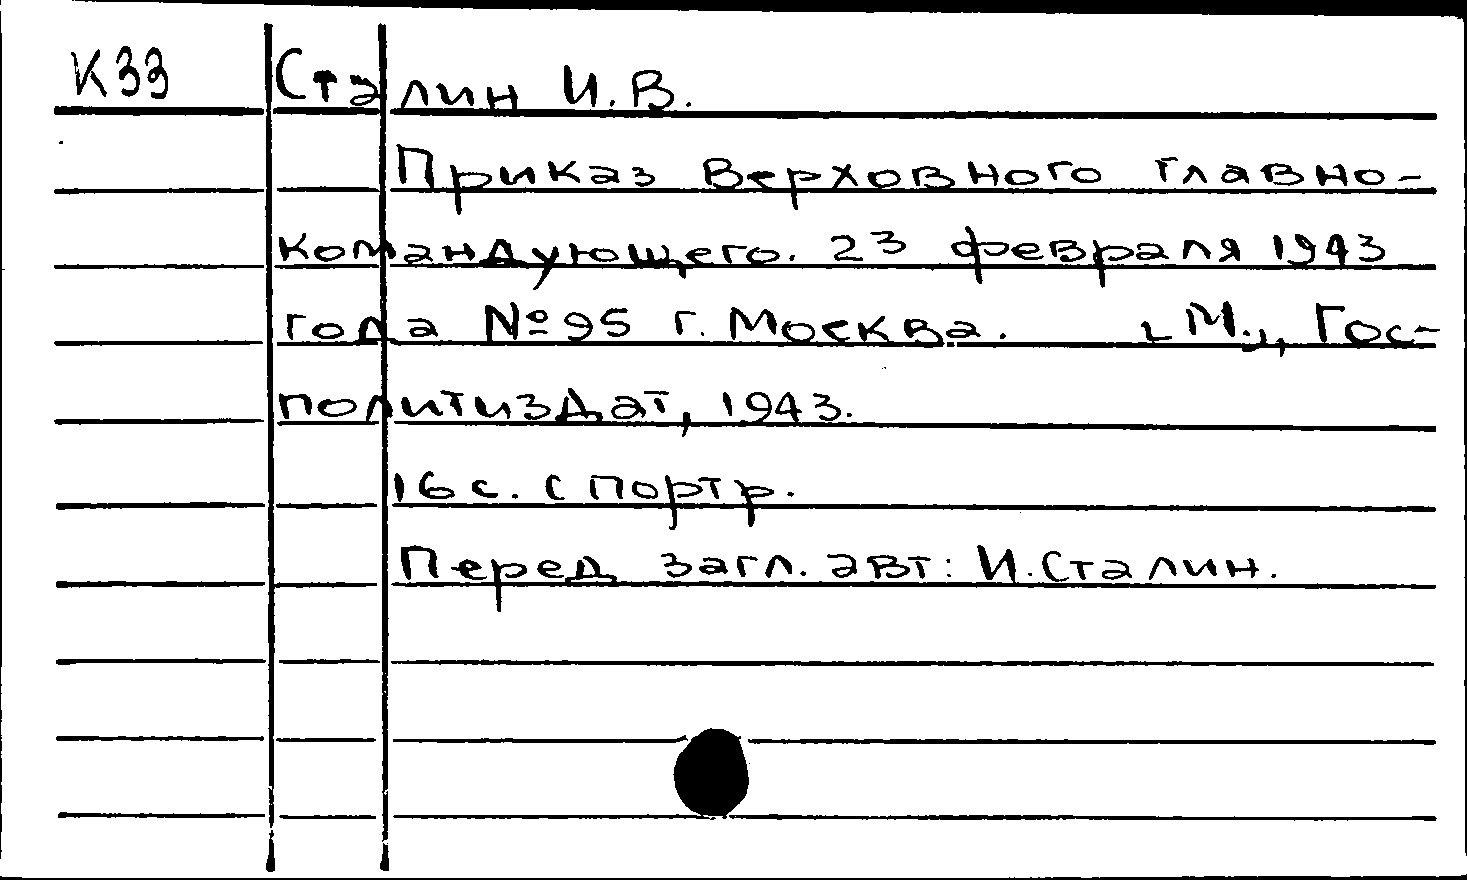 К33 Сталин И.В.
Приказ Верховного главно-
командующего. 23 февраля 1943
года №95 г. Москва. [М.], Гос-
политиздат, 1943.
16 с. с портр.
Перед загл. авт: И. Сталин.